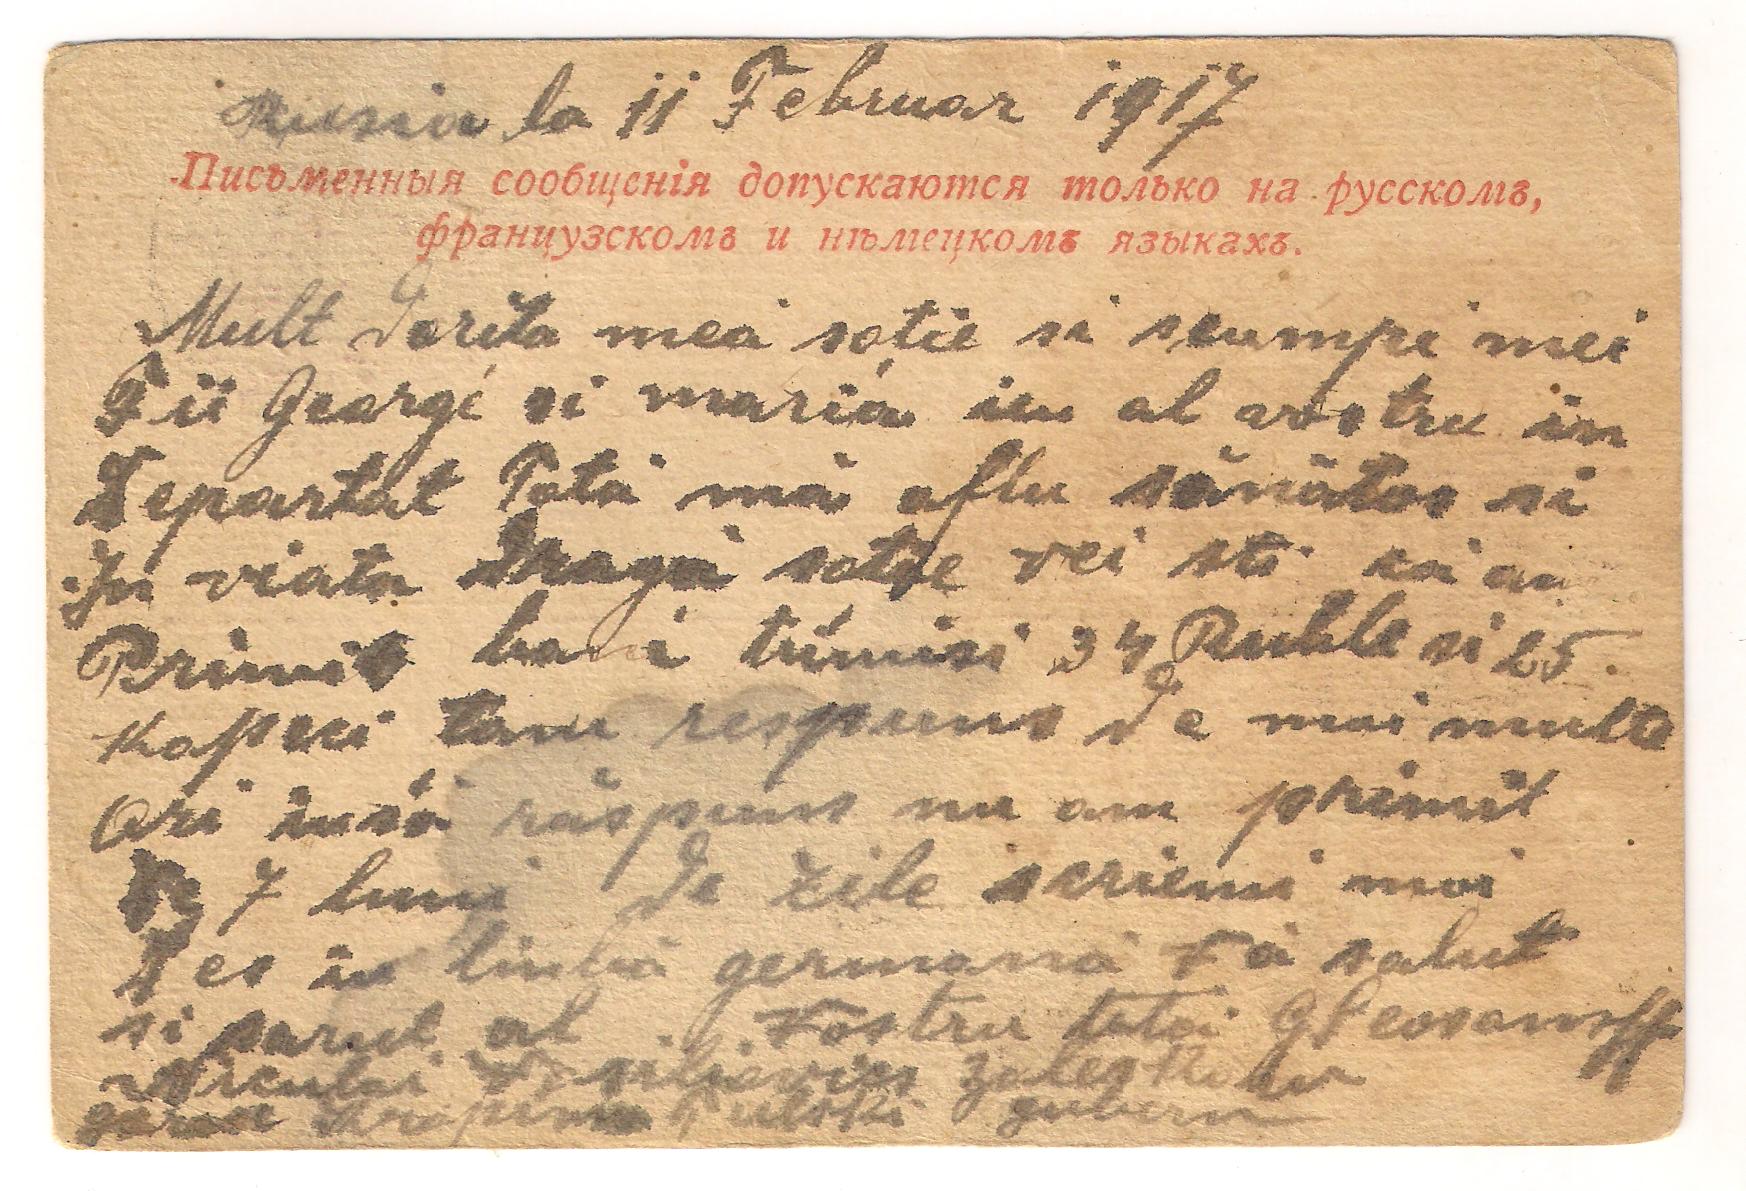 Russia la 11 Februar 1917
Письменныя сообщенія допускаются только на русскомъ,
французскомъ и нѣмецкомъ языкахъ.
Mult dorita mea sotie si scumpi mei
Fii Georgé si maria ieu al vostru in
Departat Tată mă aflu sănătos si
In viata Dragă sotie vei sti că am
Primit bani trimisi 34 Ruble si 25
Kopeci tam respuns de mai multe
Ori insă răspuns nu am primit
De 7 luni de zile scriemi mai
Des in limbă germană Vă salut
si sarut al Vostru tata
gara gubern